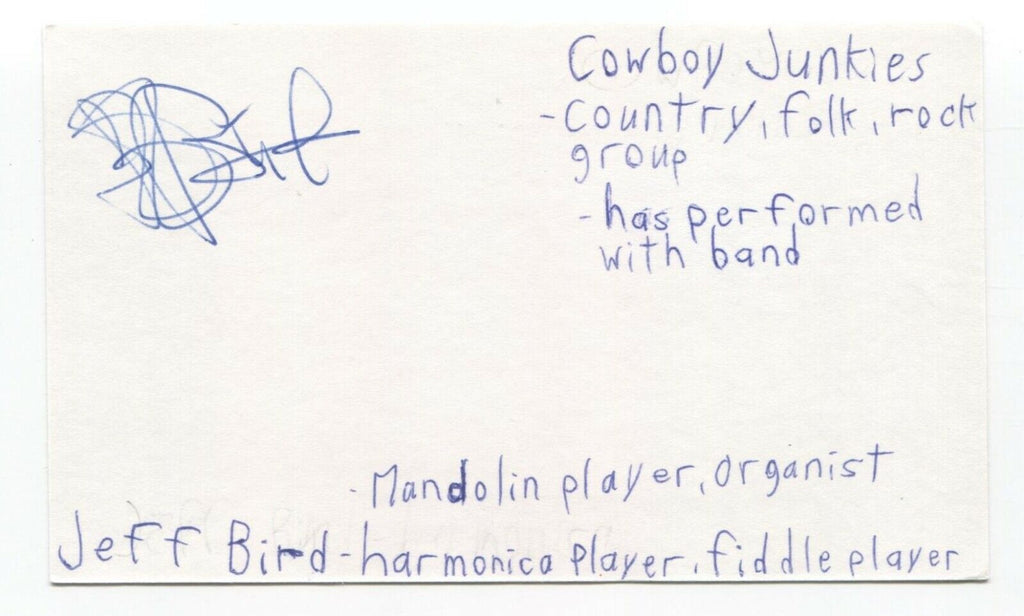 Cowboy Junkies
-Country, folk, rock
group
-has performed
with band
-Mandolin player, organist
Jeff Bird-harmonica player, fiddle player